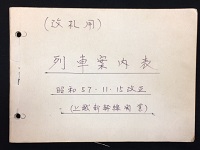 (改札用)
列車案内表
昭和57.11.15改正
(上越新幹線開業)